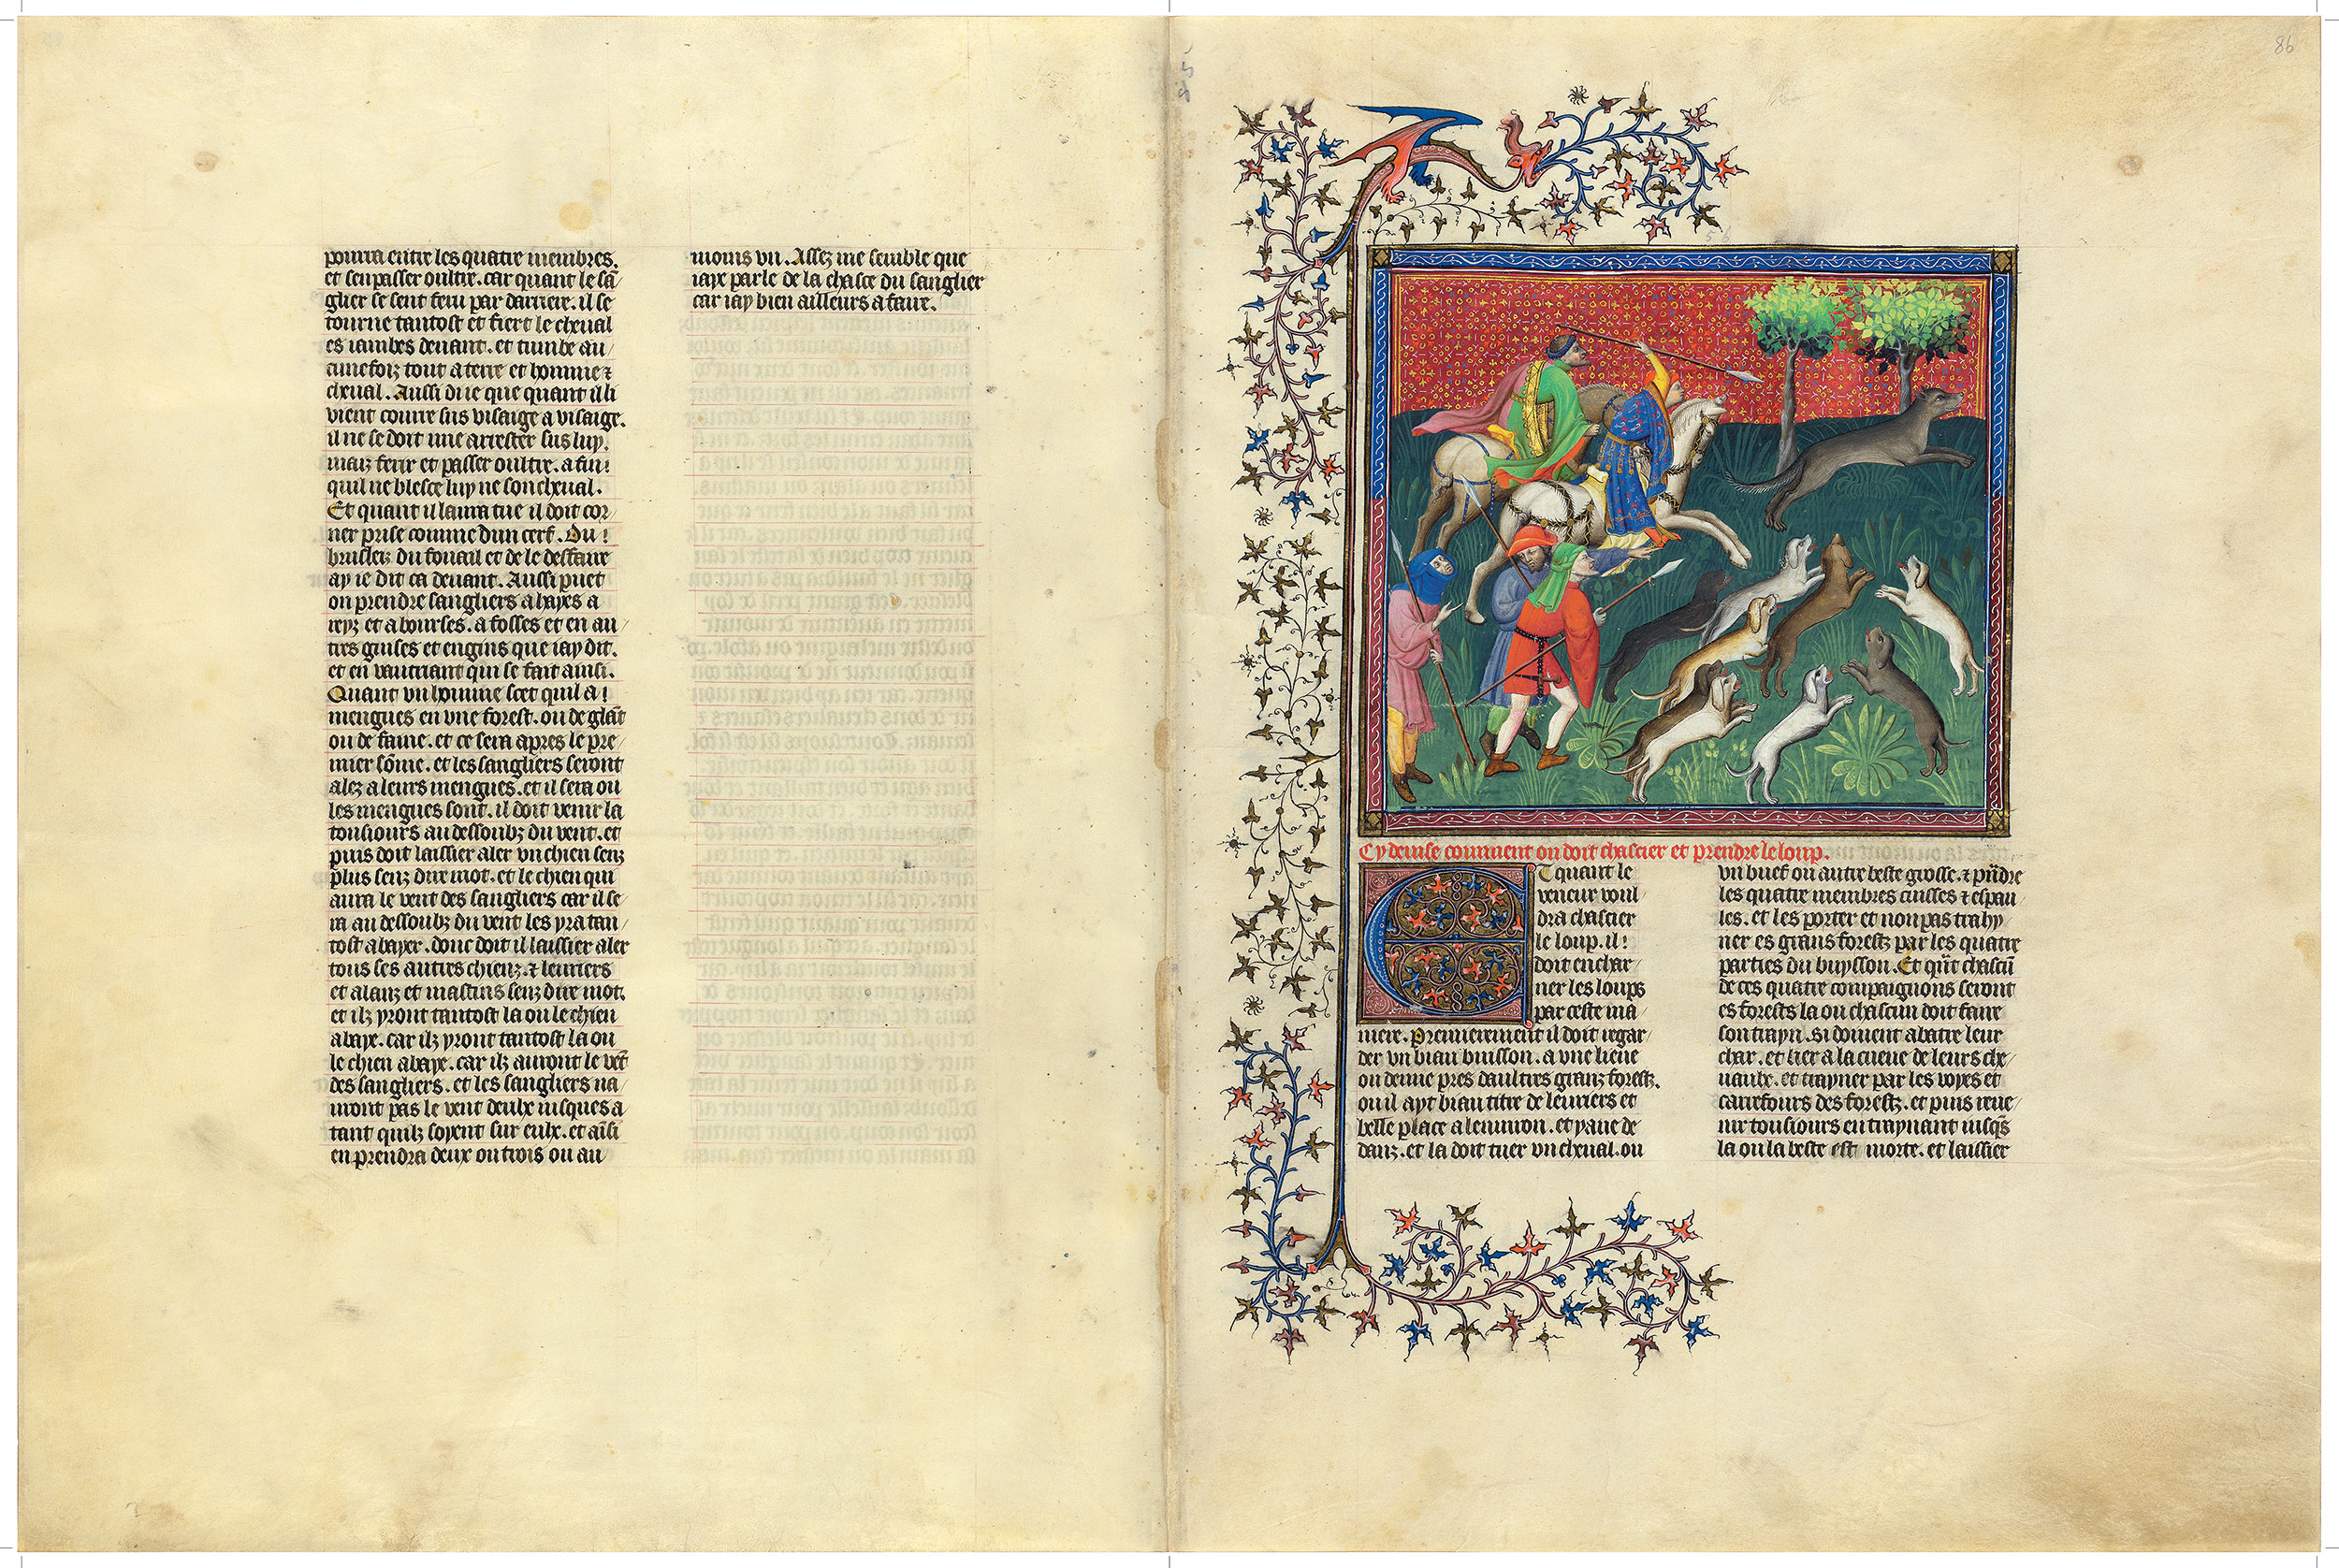 pourra entre les quatre membres.
et sen passer oultre. car quant le sā/
glier se sent feru par darriere. il se
tourne tantost et fiert le cheual
es iambes deuant. et tumbe au/
cunefoiz tout a terre et homme ⁊
cheual. Aussi due que quant il li
vient courre sus visaige a visaige.
il ne se doit mie arrester sus luy.
maiz ferir et passer oultre. a fin!
quil ne blesce luy ne son cheual.
Et quant il laura tue il doit cor/
ner prise comme dun cerf. Du!
brusleiz du fouail et de le deffaire
ay ie dit ca deuant. Aussi puet
on prendre sangliers a hayes a
reyz et a bourses. a fosses et en au/
tres guises et engins que iay dit.
et en vautriant qui se fait ainsi.
Quant vn homme scet quil a!
mengues en vne forest. ou de glāt
ou de faine. et ce sera apres le pre/
mier sōme. et les sangliers seront
alez a leurs mengues. et il sera ou
les mengues sont. il doit venir la
tousiours au dessoubz du vent. et
puis doit laissier aler vn chien senz
plus senz dire mot. et le chien qui
aura le vent des sangliers car il se/
ra au dessoubz du vent les yra tan/
tost abayer. donc doit il laissier aler
tous ses autres chienz. ⁊ leuriers
et alanz et mastins senz dire mot.
et ilz yront tantost la ou le chien
abaye. car ilz yront tantost la ou
le chien abaye. car ilz auront le vēt
des sangliers. et les sangliers na/
uront pas le vent deulx iusques a
tant quilz soyent sur eulx. et aīsi
en prendra deux ou trois ou au
moins vn. Assez me semble que
iaye parle de la chasce du sanglier
car iay bien ailleurs a faire.
86
Cy deuise comment on doit chascier et prendre le loup.
Et quant le
veneur voul
dra chascier
le loup. il!
doit enchar/
ner les loups
par ceste ma/
niere. Premierement il doit regar/
der vn biau buisson. a vne lieue
ou demie pres daultres granz forestz.
ou il ayt biau titre de leuriers et
belle place a lenuiron. et yaue de
danz. et la doit tuer vn cheual. ou
vn buef ou autre beste grosse. ⁊ pīdre
les quatre membres cuisses ⁊ espau
les. et les porter et non pas trahy/
ner es grans forestz par les quatre
parties du buysson. Et qīt chascū
de ces quatre compaignons seront
es forestz la ou chascun doit faire
son trayn. si doiuent abatre leur
char. et lier a la cueue de leurs che/
uaulx. et trayner par les voyes et
carrefours des forestz. et puis reue/
nir tousiours en traynant iusqs
la ou la beste est morte. et laissier